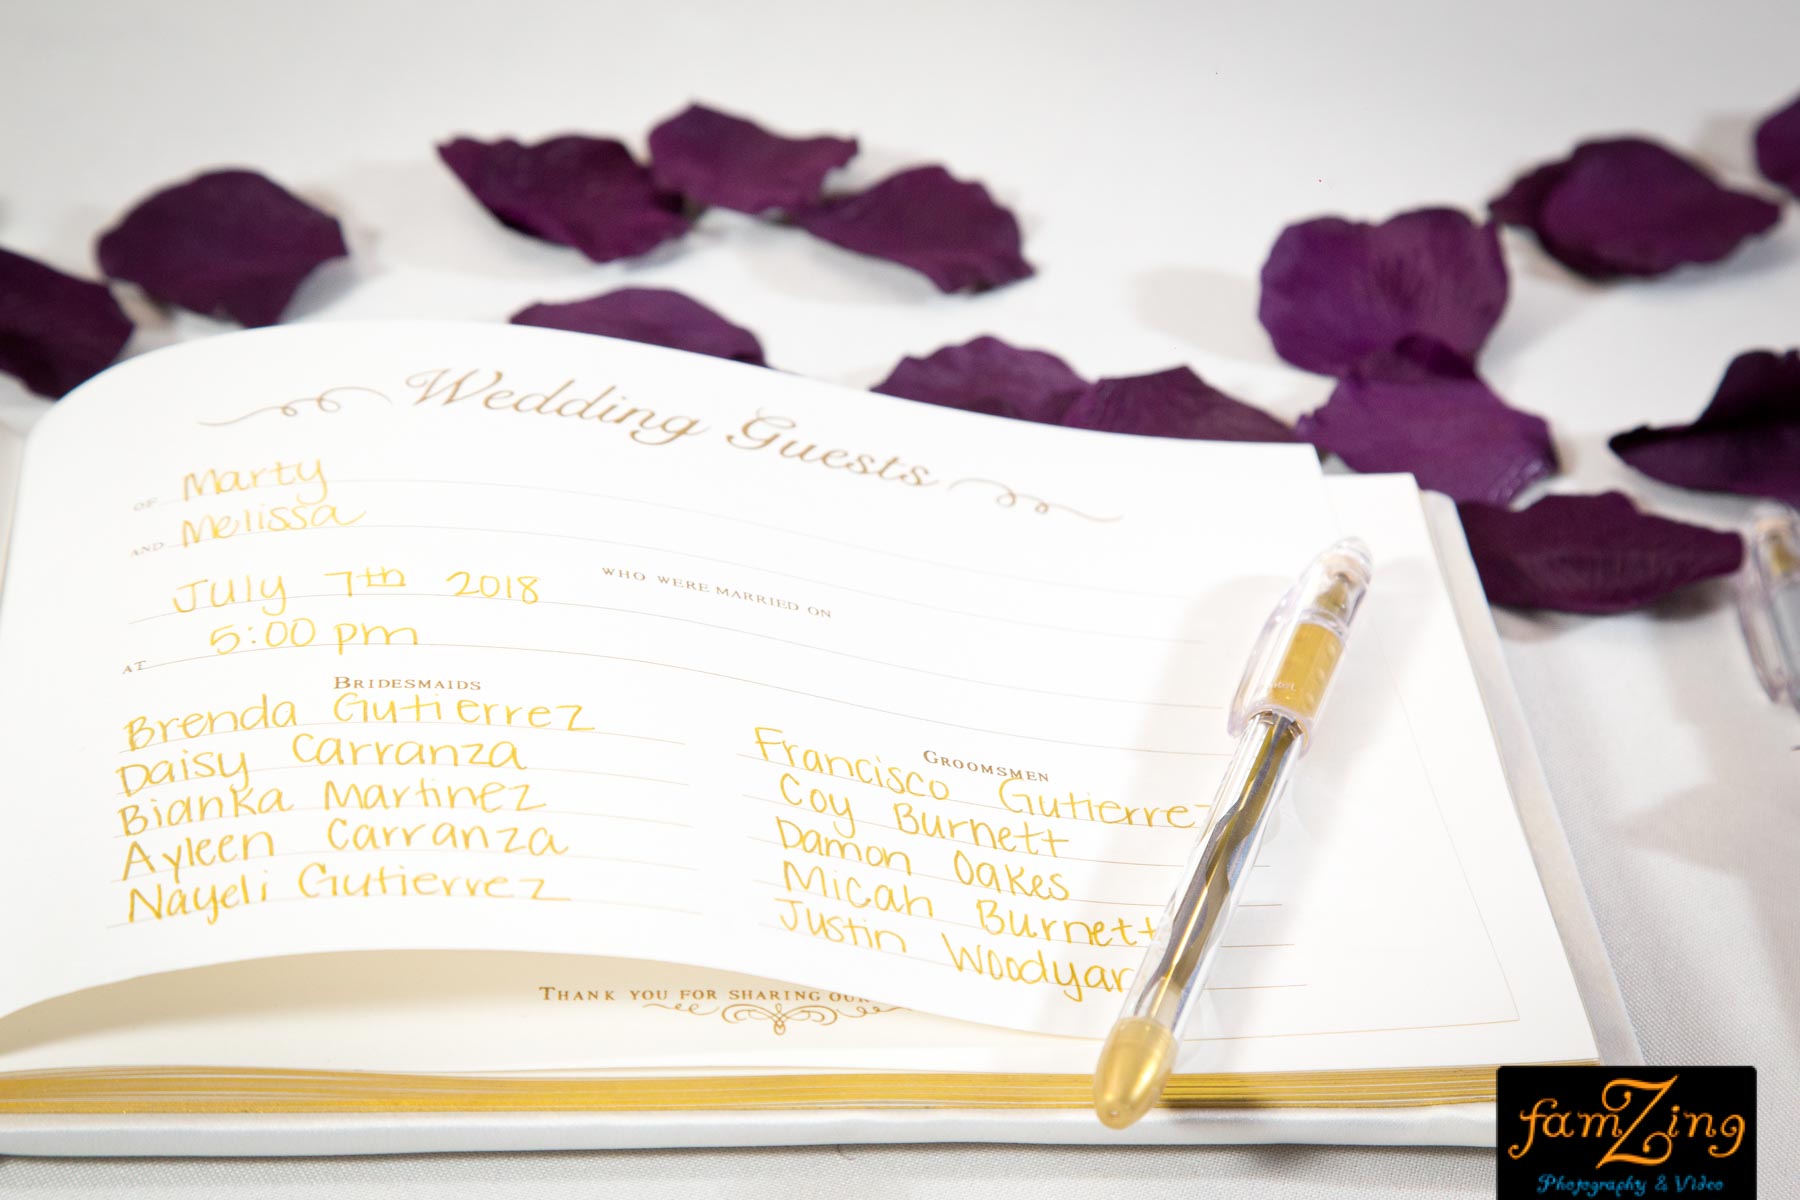 Wedding Guests
OF Marty
AND Melissa
WHO WERE MARRIED ON
July 7th 2018
AT 5:00 pm
BRIDESMAIDS
Brenda Gutierrez
Daisy Carranza
Bianka Martinez
Ayleen Carranza
Nayeli Gutierrez
GROOMSMEN
Francisco Gutierrez
Coy Burnett
Damon Oakes
Micah Burnett
Justin Woodyar
THANK YOU FOR SHARING OUR
famZing
Photography & Video